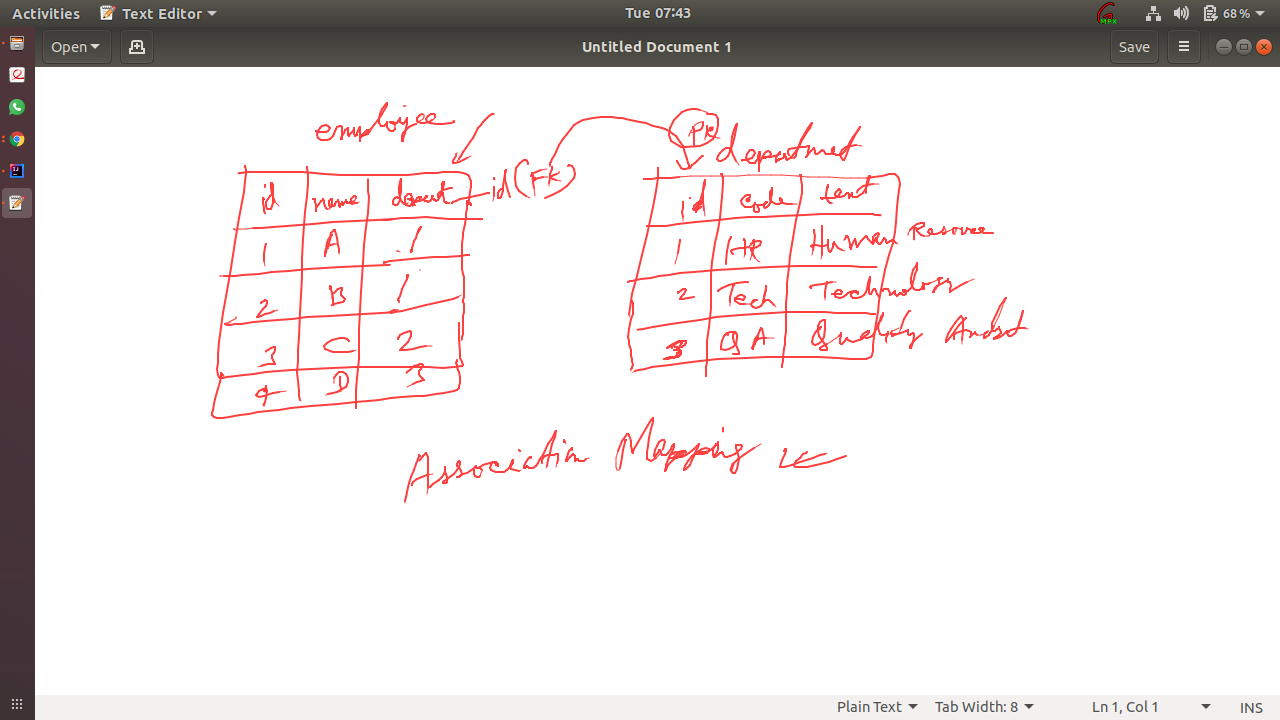 Activities Text Editor Tue 07:43 68%
Open Untitled Document 1 Save
employee PK department
id name depart-id(FK)
1 A 1
2 B 1
3 C 2
4 D 3
id code text
1 HR Human Resource
2 Tech Technology
3 QA Quality
Association Mapping
Plain Text Tab Width: 8 Ln 1, Col 1 INS